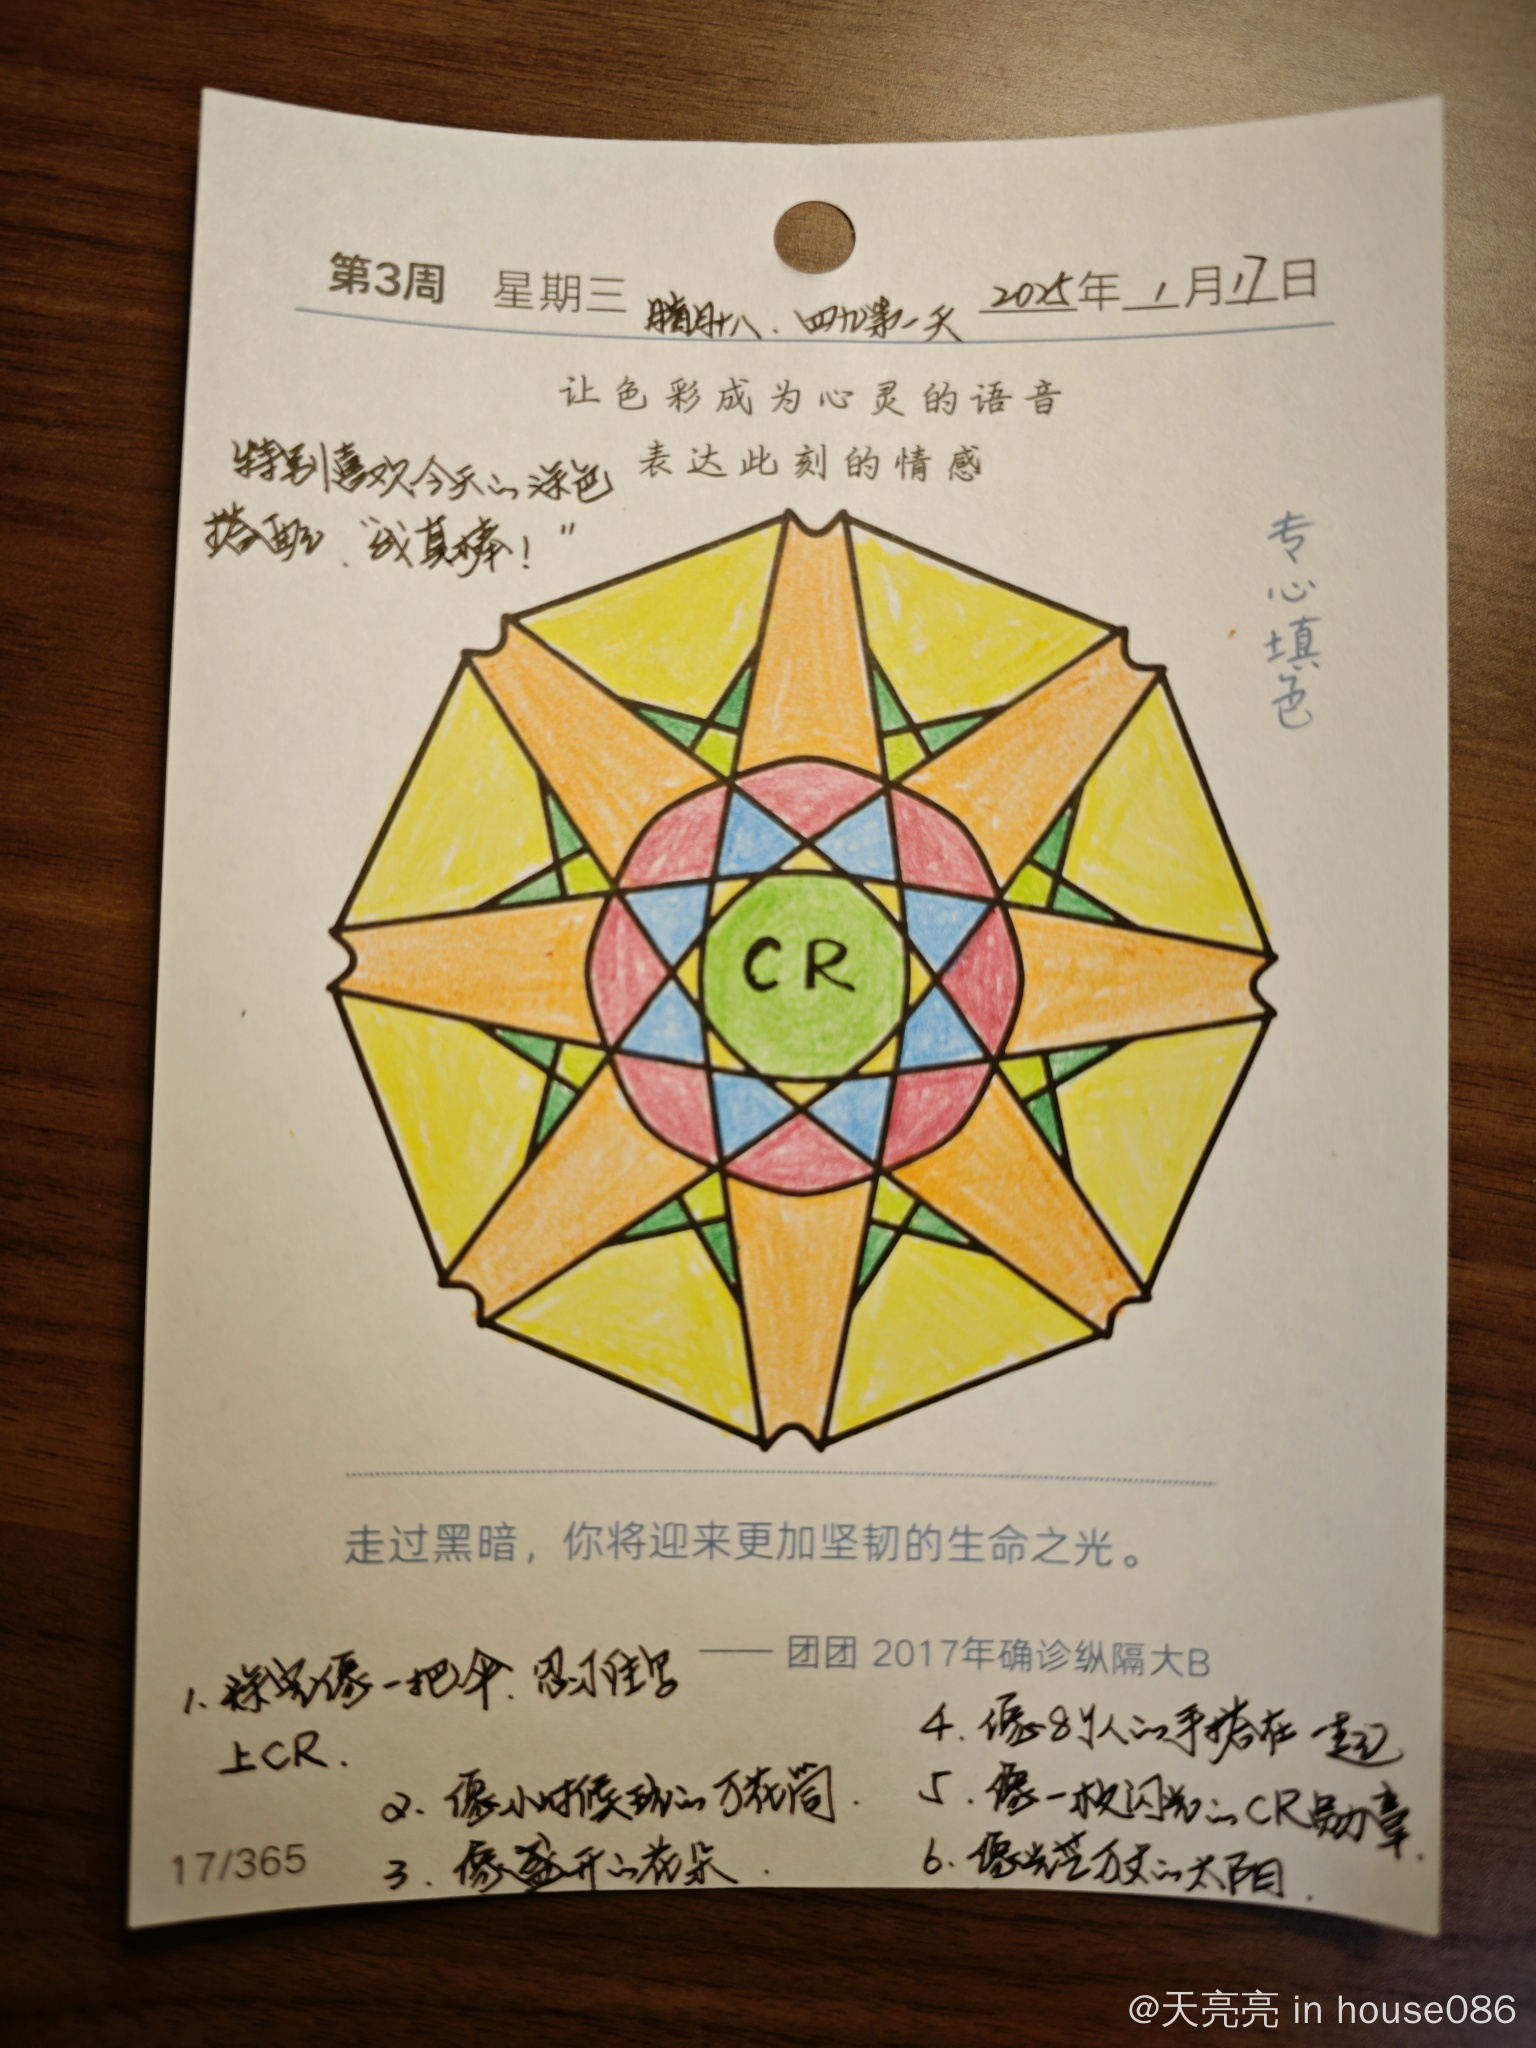 第3周 星期三 腊月十八、四九第一天 2025年1月17日
让色彩成为心灵的语音
表达此刻的情感
特别喜欢今天的涂色
搭配、“我真棒！”
专心填色
CR
走过黑暗，你将迎来更加坚韧的生命之光。
—— 团团 2017年确诊纵隔大B
1. 涂完像一把伞、忍不住写
上CR.
2. 像小时候玩的万花筒.
3. 像盛开的花朵.
4. 像8个人的手搭在一起
5. 像一枚闪光的CR勋章.
6. 像光芒万丈的太阳.
17/365
@天亮亮 in house086